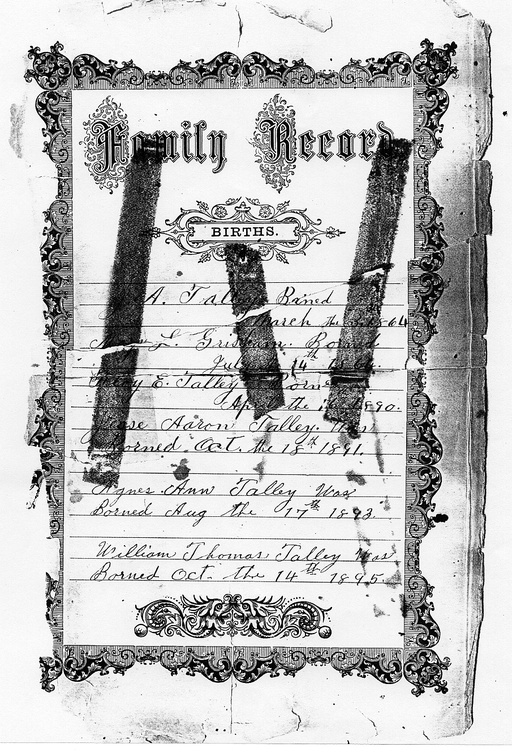 Family Record
BIRTHS.
A. Talley Borned
March the 1864
L. Grisham. Borned
July 14th
E. Talley Borned
the 1890.
Aaron Talley. Was
Borned Oct. the 18th 1891.
Agnes Ann Talley Was
Borned Aug the 17th 1893
William Thomas Talley Was
Borned Oct. the 14th 1895.